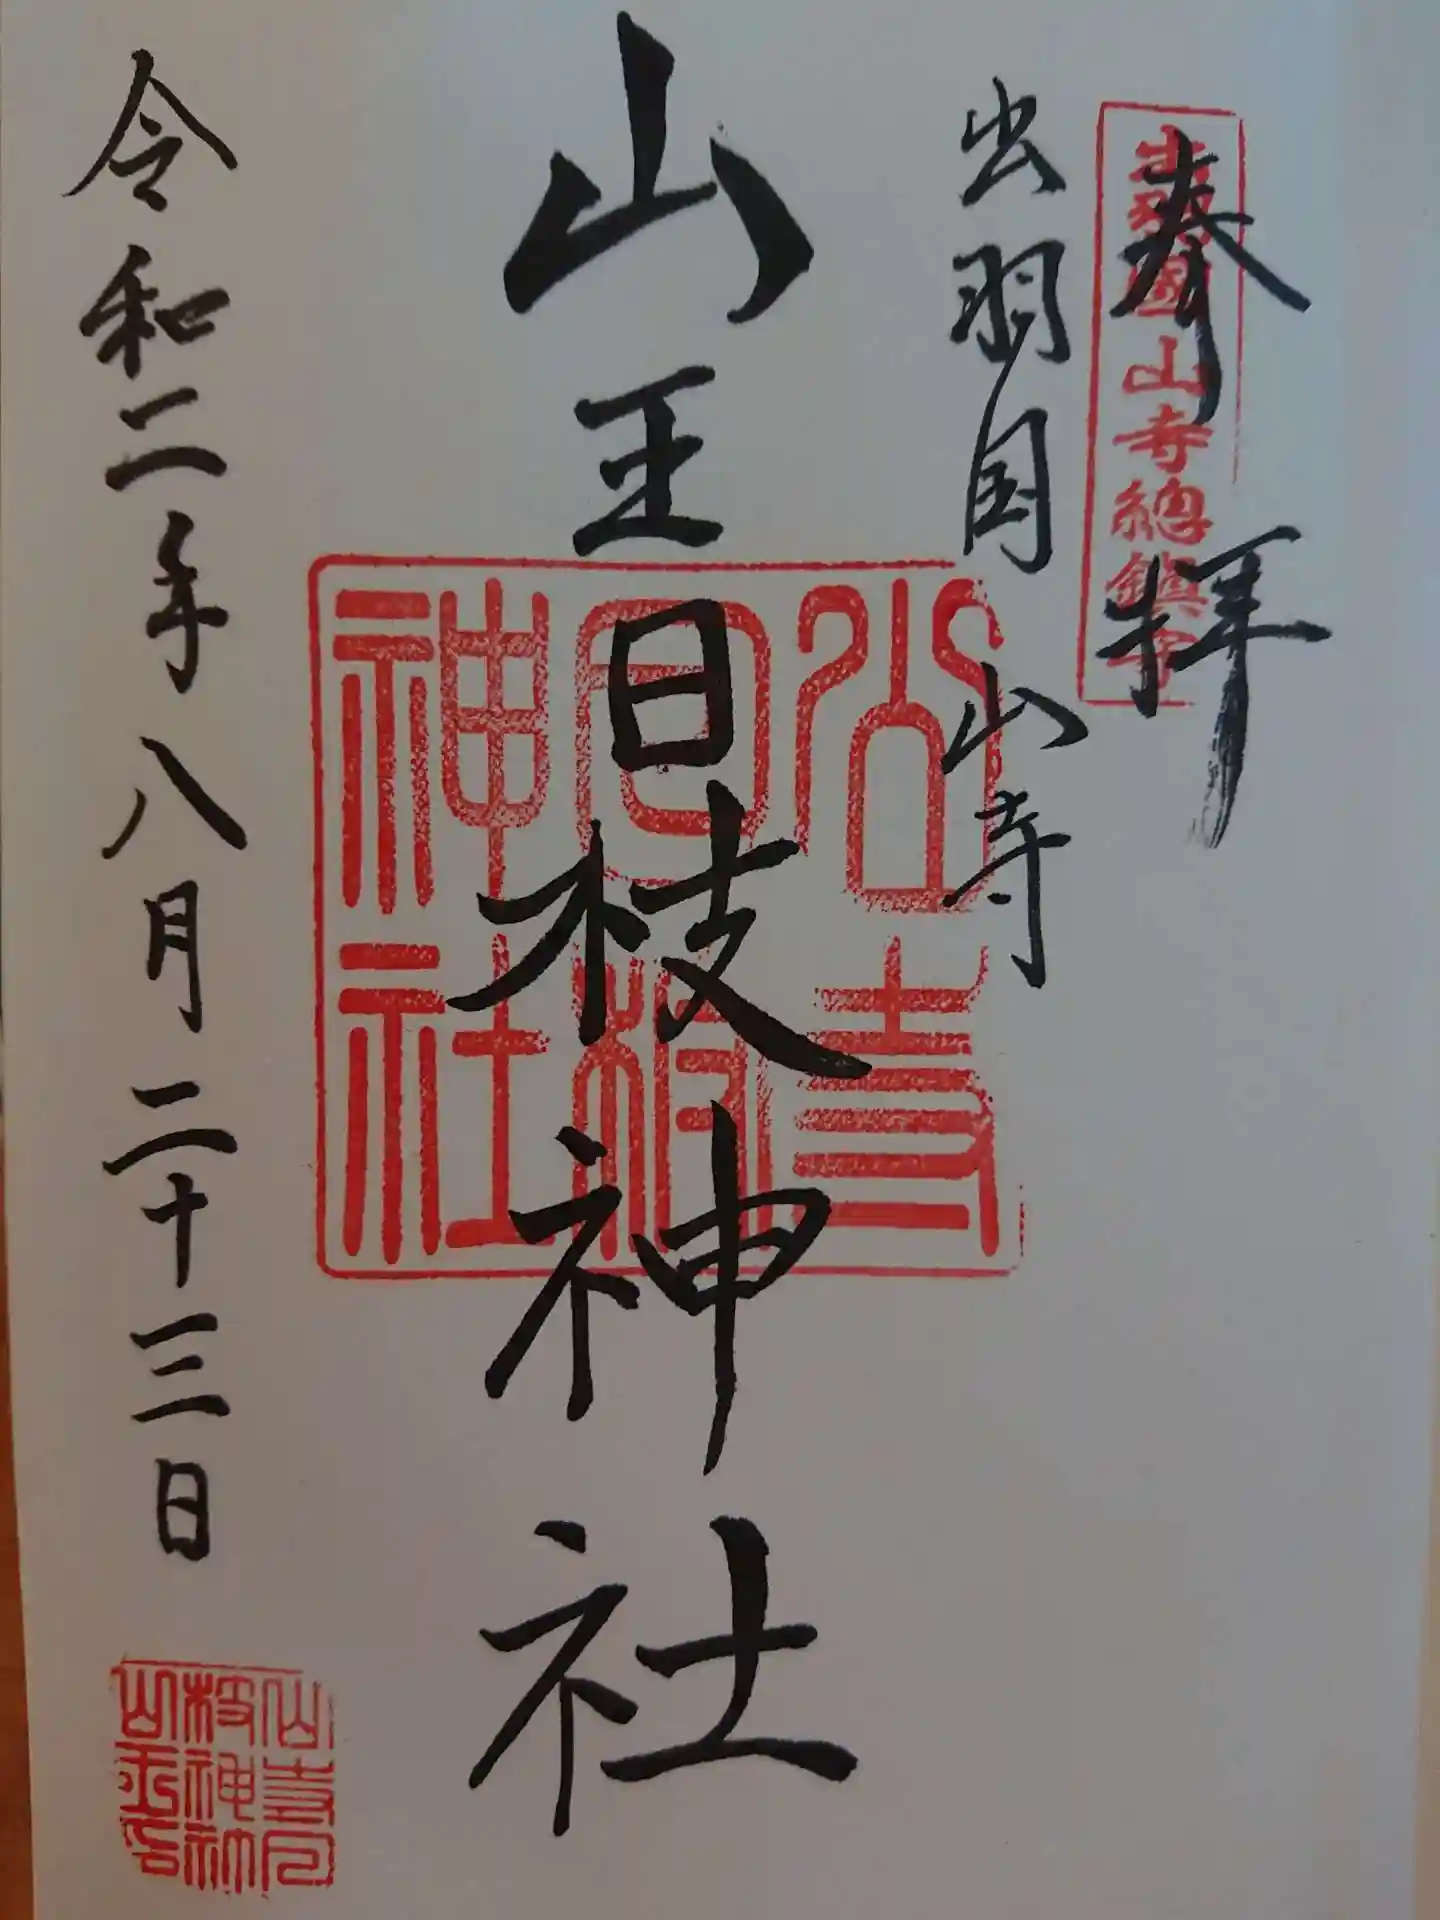 奉拝
出羽國山寺總鎮守
出羽国山寺
山王日枝神社
山寺
日枝
神社
令和二年八月二十三日
山寺日
枝神社